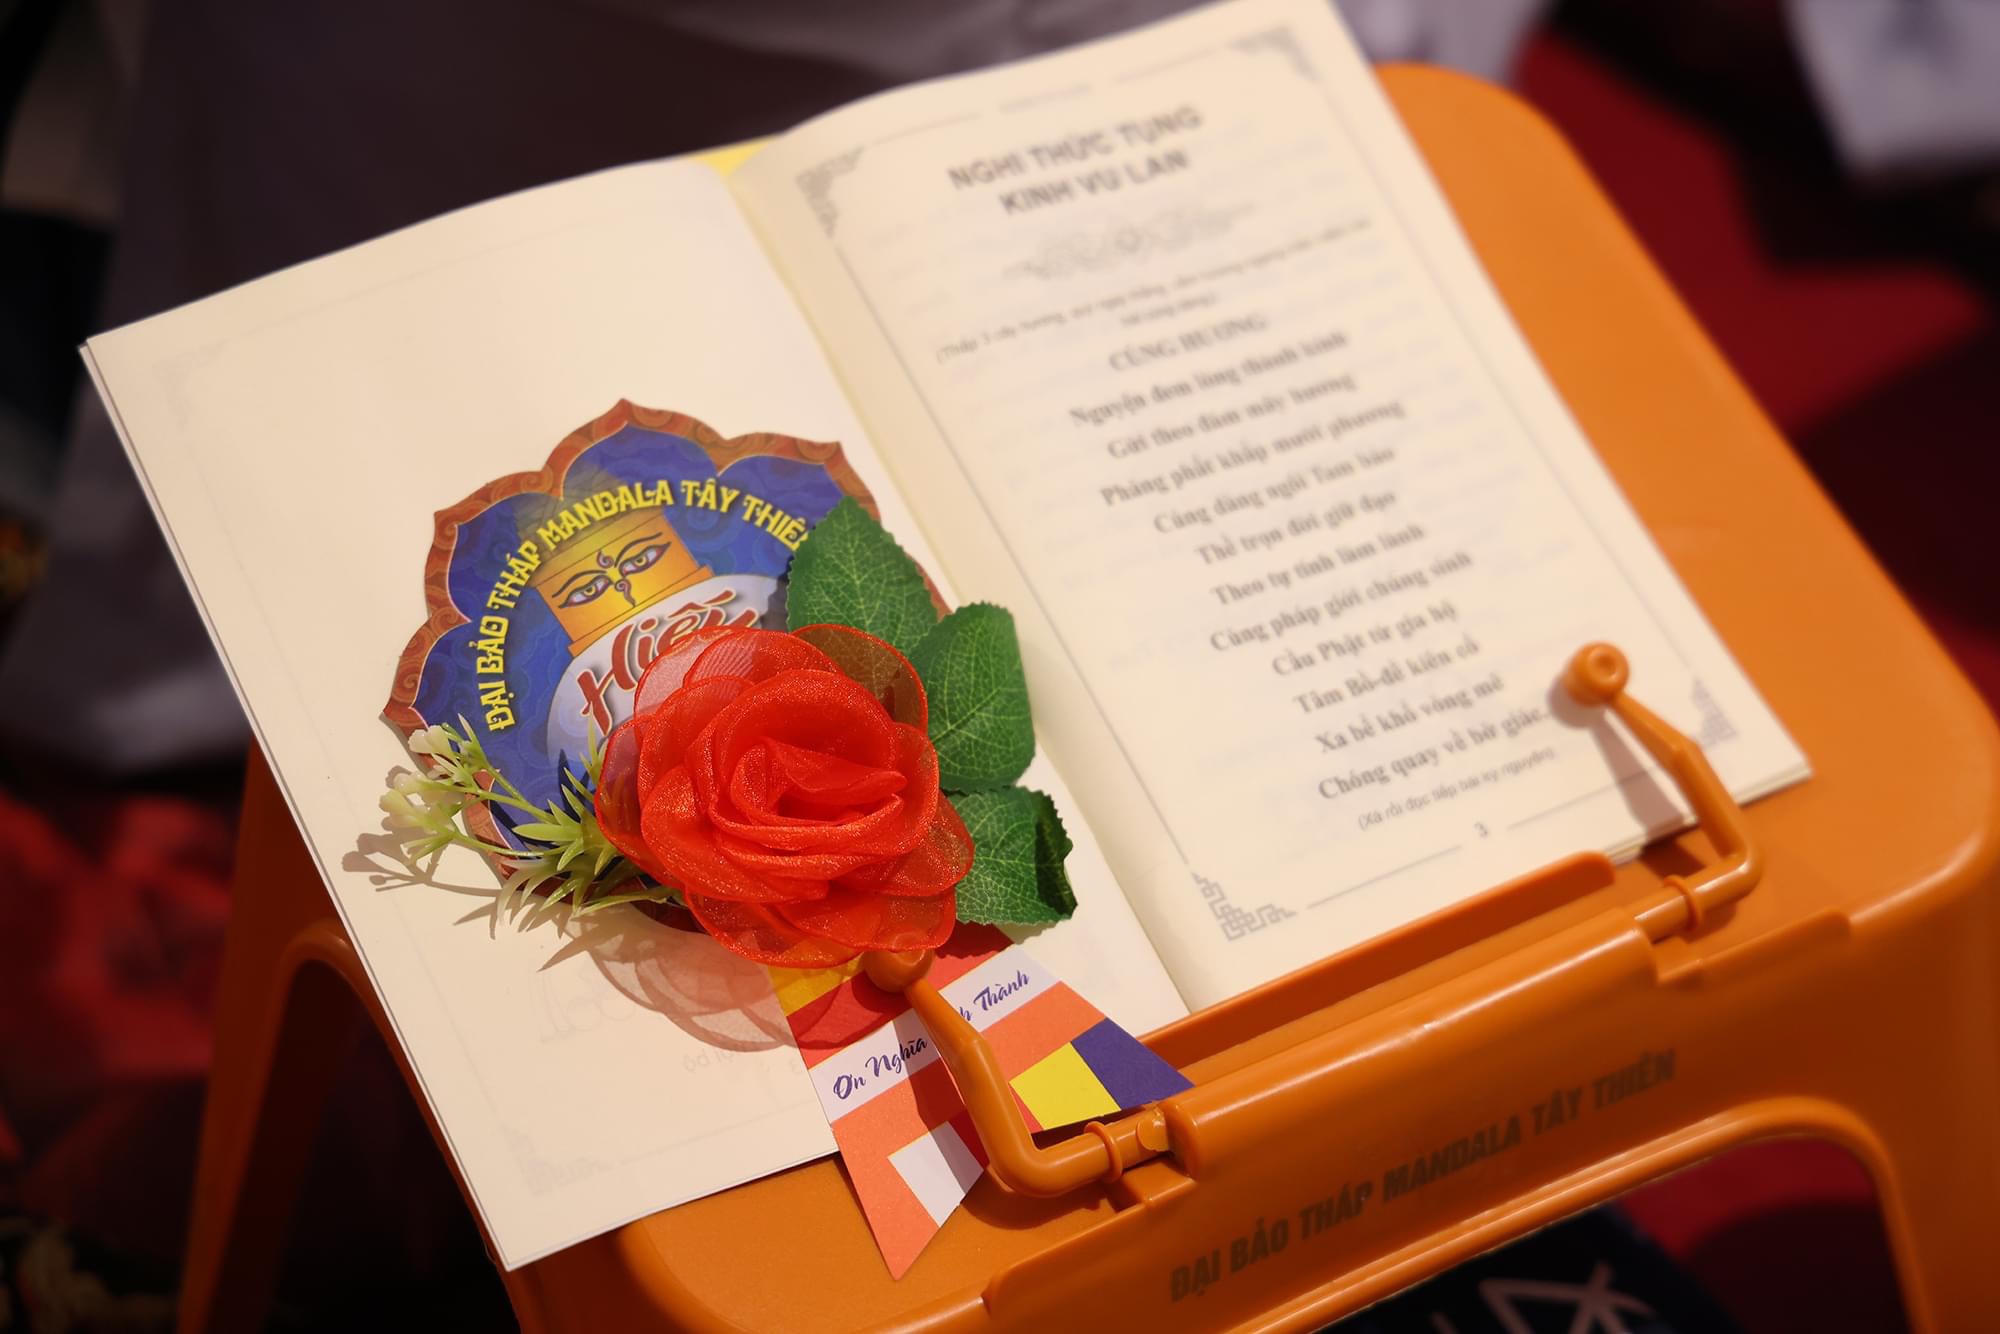 ĐẠI BẢO THÁP MANDALA TÂY THIÊN
Ơn Nghĩa
Thành
NGHI THỨC TỤNG
KINH VU LAN
CÚNG HƯƠNG
Nguyện đem lòng thành kính
Gửi theo đám mây hương
Phảng phất khắp mười phương
Cúng dàng ngôi Tam bảo
Thề trọn đời giữ đạo
Theo tự tính làm lành
Cùng pháp giới chúng sinh
Cầu Phật từ gia hộ
Tâm Bồ-đề kiên cố
Xa bể khổ vòng mê
Chóng quay về bờ giác.
(Xá rồi đọc tiếp bài kỳ nguyện)
3
ĐẠI BẢO THÁP MANDALA TÂY THIÊN